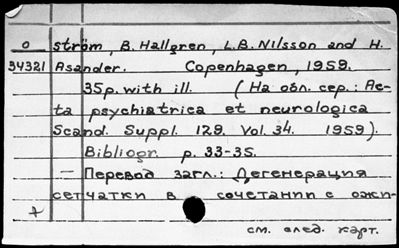 o ström, B. Hallgren, L.B. Nilsson and H.
34321 Asander. Copenhagen, 1959.
35p. with ill. (На обл. сер.: Ac-
ta psychiatrica et neurologica
Scand. Suppl. 129. Vol. 34. 1959).
Bibliogr. p. 33-35.
— Перевод загл.: Дегенерация
сетчатки в сочетании с ожи-
+
см. след. карт.